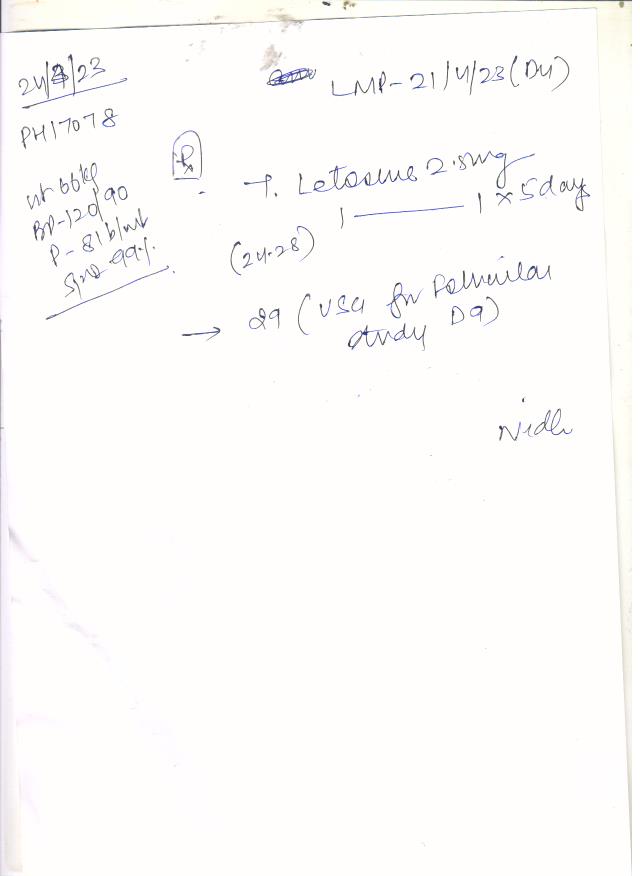 24/4/23
PH17078
wt 66kg
BP-120/90
P-81 b/mt
SpO2 99%.
LMP-21/4/23 (D4)
Rx
T. Letosine 2.5mg
1 ——— 1 x 5 days
(24-28)
→ 29 (USG for Follicular
study D9)
Nidhi